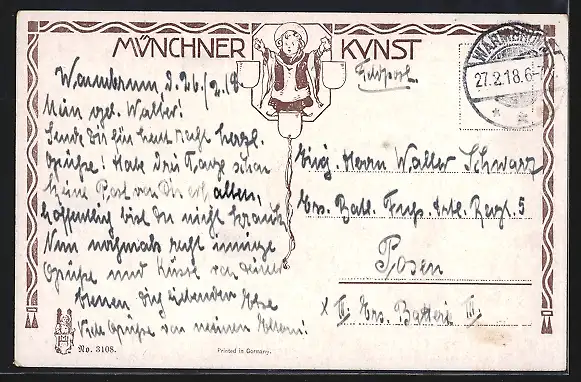 MÜNCHNER KVNST
Warmbrunn d. 26./2.18
Mein vgel. Walter!
Sende dir für heut recht herzl.
Grüße! Habe drei Tage schon
keine Post von Dir erhalten,
hoffentlich bist du nicht krank.
Nun nochmals recht innige
Grüße und Küsse von deiner
treuen dich liebenden Else
Viele Grüße von meinen Eltern!
Feldpost
WARMBRUNN
27.2.18.6-7
Herrn Walter Schwarz
Ers. Batl. Fuß. Artl. Regt. 5
Posen
x II Ers. Batteri III.
No. 3108.
Printed in Germany.